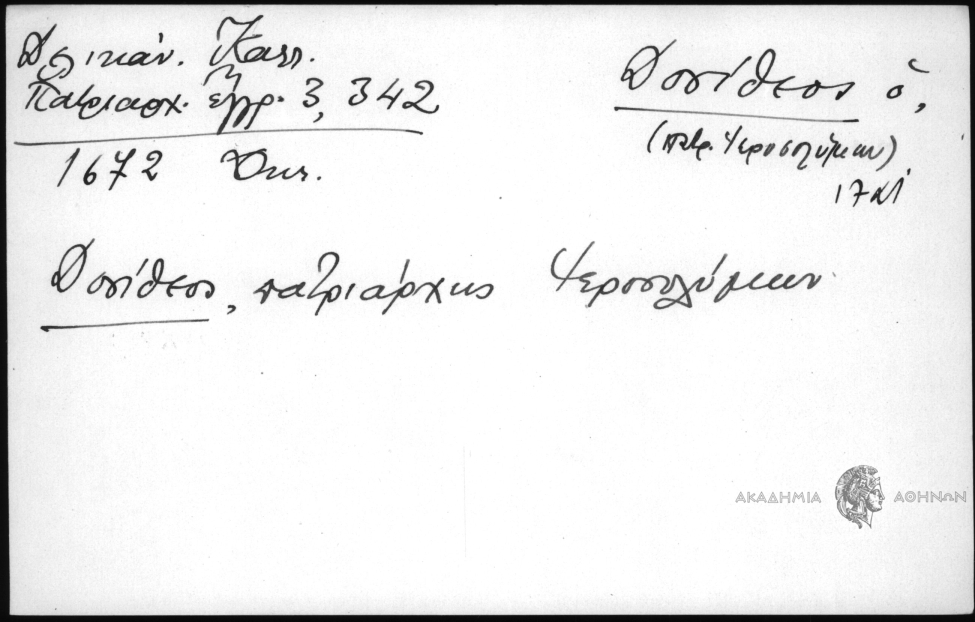 Δελικάν. Καλλ.
Πατριαρχ. έγγρ. 3, 342
1672 Οκτ.
Δοσίθεος ὁ,
(πατρ. Ἱεροσολύμων)
17 αἰ
Δοσίθεος, πατριάρχης Ἱεροσολύμων
ΑΚΑΔΗΜΙΑ ΑΘΗΝΩΝ